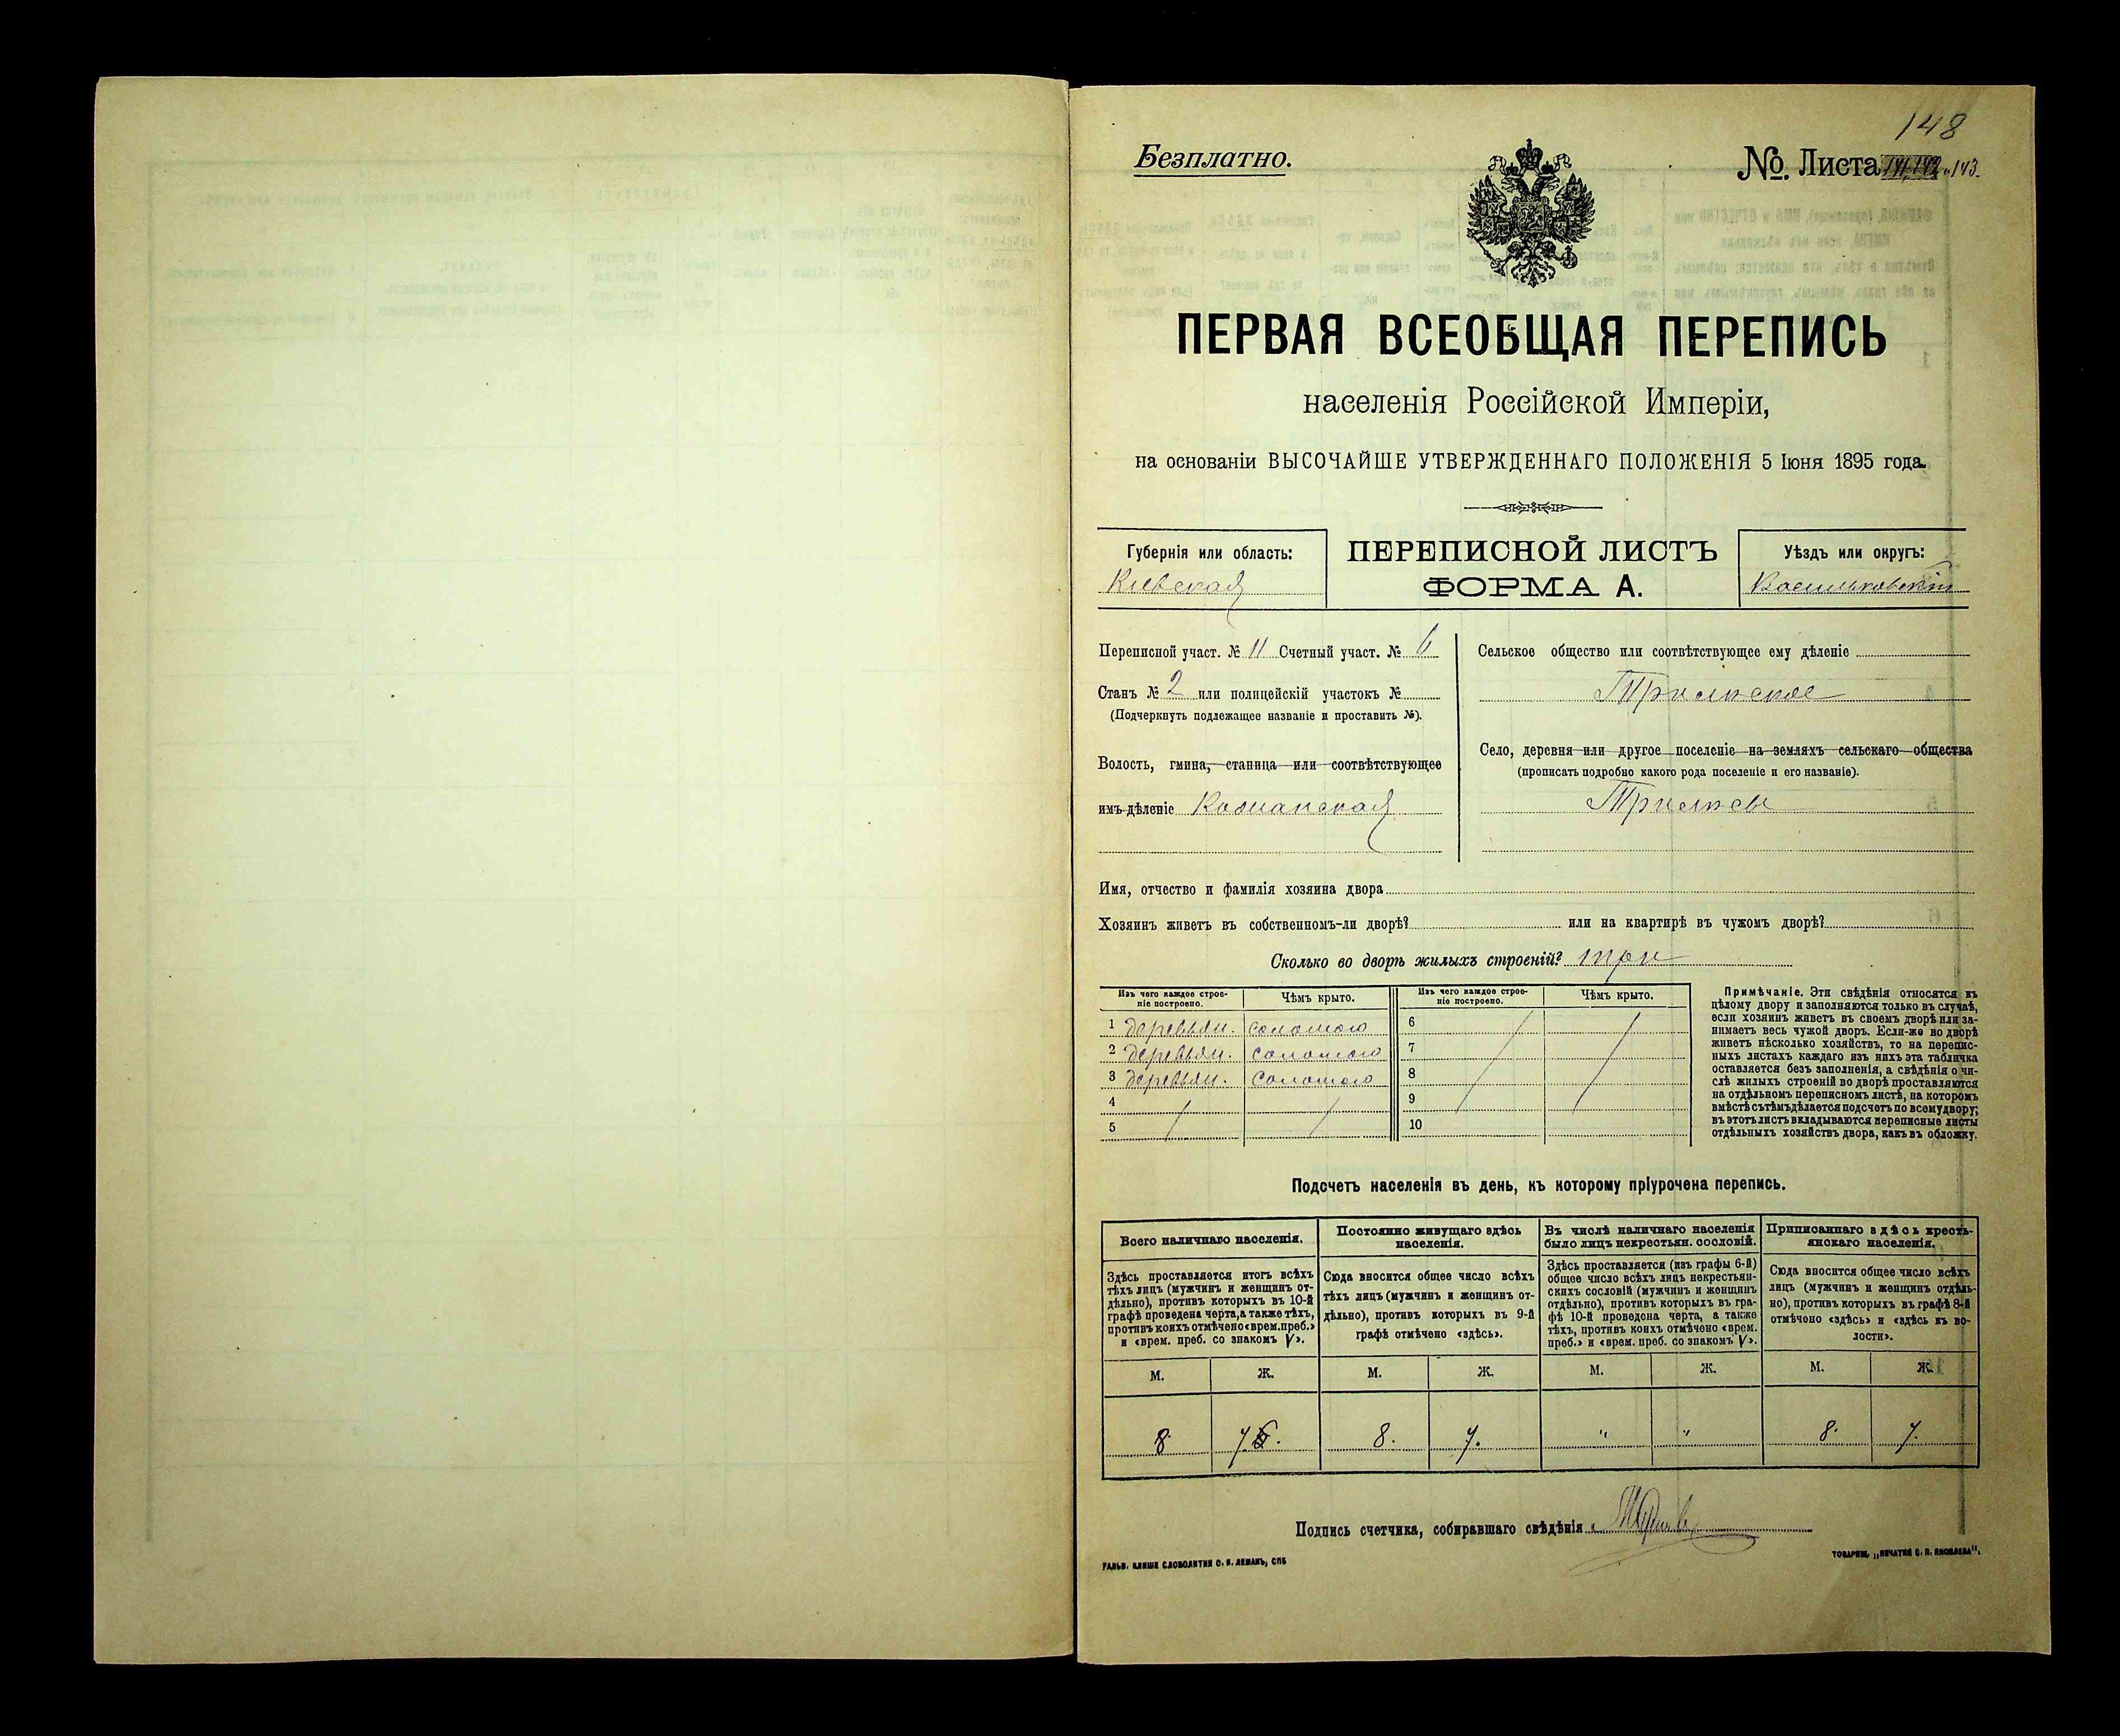 148
Безплатно.
№ Листа 141, 142 и 143.
ПЕРВАЯ ВСЕОБЩАЯ ПЕРЕПИСЬ
населенія Россійской Имперіи,
на основаніи ВЫСОЧАЙШЕ УТВЕРЖДЕННАГО ПОЛОЖЕНІЯ 5 Іюня 1895 года.
Губернія или область:
Кіевская
ПЕРЕПИСНОЙ ЛИСТЪ
ФОРМА А.
Уѣздъ или округъ:
Васильковскій
Переписной участ. № 11 Счетный участ. № 6
Станъ № 2 или полицейскій участокъ №
(Подчеркнуть подлежащее названіе и проставить №).
Волость, гмина, станица или соотвѣтствующее
имъ дѣленіе Кошанская
Сельское общество или соотвѣтствующее ему дѣленіе
Трилѣское
Село, деревня или другое поселеніе на земляхъ сельскаго общества
(прописать подробно какого рода поселеніе и его названіе).
Трилѣсы
Имя, отчество и фамилія хозяина двора
Хозяинъ живетъ въ собственномъ-ли дворѣ? или на квартирѣ въ чужомъ дворѣ?
Сколько во дворѣ жилыхъ строеній? три
Изъ чего каждое строе-
ніе построено.
Чѣмъ крыто.
1 деревян. соломою
2 деревян. соломою
3 деревян. соломою
4
5
Изъ чего каждое строе-
ніе построено.
Чѣмъ крыто.
6
7
8
9
10
Примѣчаніе. Эти свѣдѣнія относятся къ
цѣлому двору и заполняются только въ случаѣ,
если хозяинъ живетъ въ своемъ дворѣ или за-
нимаетъ весь чужой дворъ. Если-же во дворѣ
живетъ нѣсколько хозяйствъ, то на перепис-
ныхъ листахъ каждаго изъ нихъ эта табличка
оставляется безъ заполненія, а свѣдѣнія о чи-
слѣ жилыхъ строеній во дворѣ проставляются
на отдѣльномъ переписномъ листѣ, на которомъ
вмѣстѣ съ тѣмъ дѣлается подсчетъ по всему двору;
въ этотъ листъ вкладываются переписные листы
отдѣльныхъ хозяйствъ двора, какъ въ обложку.
Подсчетъ населенія въ день, къ которому пріурочена перепись.
Всего наличнаго населенія.
Здѣсь проставляется итогъ всѣхъ
тѣхъ лицъ (мужчинъ и женщинъ от-
дѣльно), противъ которыхъ въ 10-й
графѣ проведена черта, а также тѣхъ,
противъ коихъ отмѣчено «врем. преб.»
и «врем. преб. со знакомъ V».
Постоянно живущаго здѣсь
населенія.
Сюда вносится общее число всѣхъ
тѣхъ лицъ (мужчинъ и женщинъ от-
дѣльно), противъ которыхъ въ 9-й
графѣ отмѣчено «здѣсь».
Въ числѣ наличнаго населенія
было лицъ некрестьян. сословій.
Здѣсь проставляется (изъ графы 6-й)
общее число всѣхъ лицъ некрестьян-
скихъ сословій (мужчинъ и женщинъ
отдѣльно), противъ которыхъ въ гра-
фѣ 10-й проведена черта, а также
тѣхъ, противъ коихъ отмѣчено «врем.
преб.» и «врем. преб. со знакомъ V».
Приписаннаго здѣсь кресть-
янскаго населенія.
Сюда вносится общее число всѣхъ
лицъ (мужчинъ и женщинъ отдѣль-
но), противъ которыхъ въ графѣ 8-й
отмѣчено «здѣсь» и «здѣсь къ во-
лости».
М. Ж. М. Ж. М. Ж. М. Ж.
8 7. 8. 7. " " 8. 7.
Подпись счетчика, собиравшаго свѣдѣнія
ГАЛЬВ. КЛИШЕ СЛОВОЛИТНИ О. И. ЛЕМАНЪ, СПБ
ТОВАРИЩ. „ПЕЧАТНЯ С. П. ЯКОВЛЕВА".